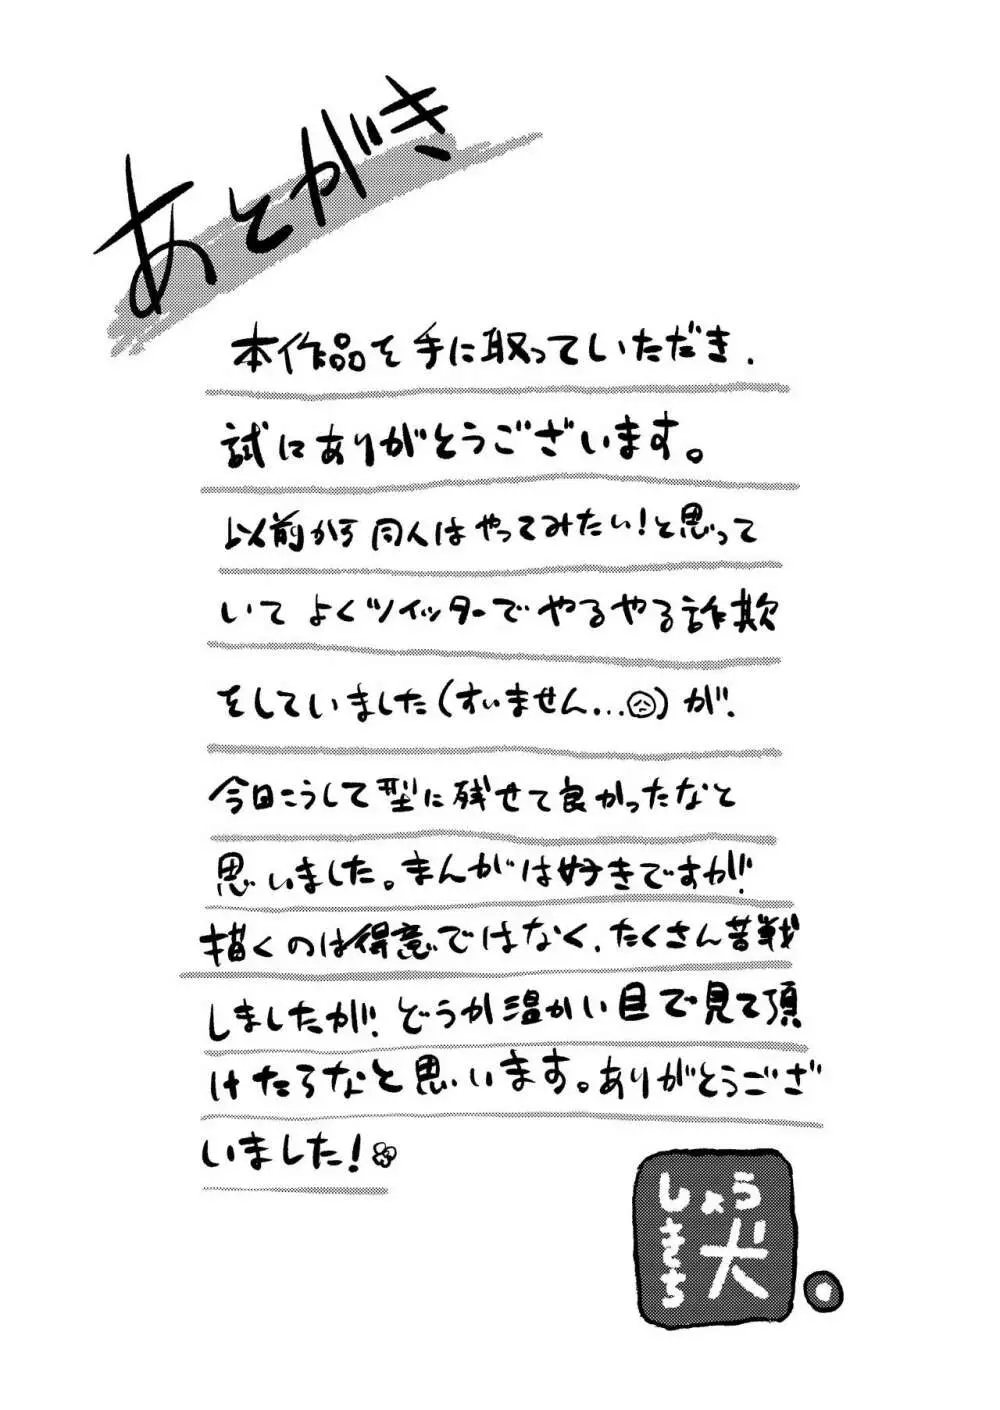 あとがき
本作品を手に取っていただき、
試にありがとうございます。
以前から同人はやってみたい！と思って
いて よくツイッターでやるやる詐欺
をしていました(すいません...)が、
今日こうして型に残せて良かったなと
思いました。まんがは好きですが、
描くのは得意ではなく、たくさん苦戦
しましたが、どうか温かい目で見て頂
けたらなと思います。ありがとうござ
いました！
しょう
きち
犬